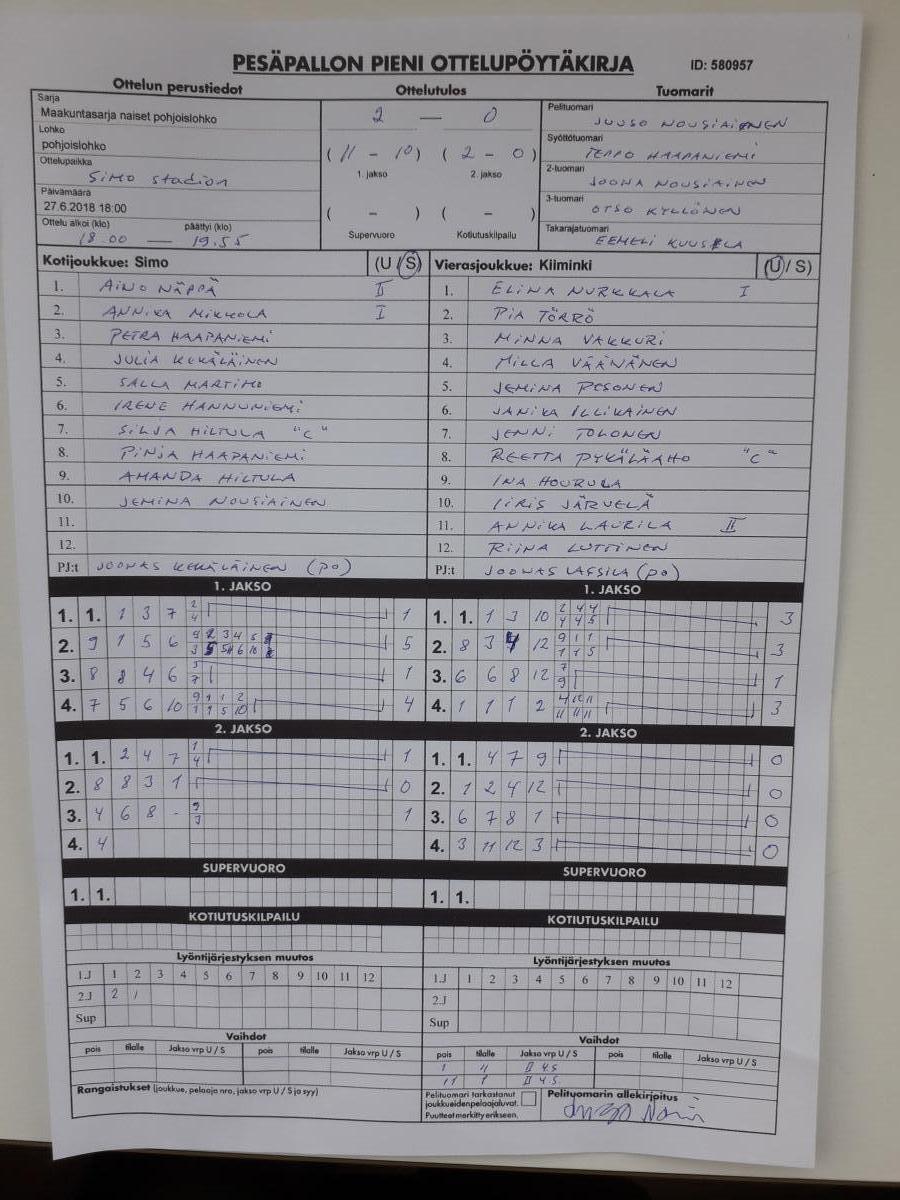 PESÄPALLON PIENI OTTELUPÖYTÄKIRJA ID: 580957
Ottelun perustiedot Ottelutulos Tuomarit
Sarja
Maakuntasarja naiset pohjoislohko
Lohko
pohjoislohko
Ottelupaikka
SIMO stadion
Päivämäärä
27.6.2018 18:00
Ottelu alkoi (klo) päättyi (klo)
18.00 — 19.55
2 — 0
( 11 - 10 ) ( 2 - 0 )
1. jakso 2. jakso
( - ) ( - )
Supervuoro Kotiutuskilpailu
Pelituomari
JUUSO NOUSIAINEN
Syöttötuomari
TEPPO HAAPANIEMI
2-tuomari
JOONA NOUSIAINEN
3-tuomari
OTSO KYLLÖNEN
Takarajatuomari
EEMELI KUUSELA
Kotijoukkue: Simo (U / S)
1. AINO NÄPPÄ II
2. ANNIKA MIKKOLA I
3. PETRA HAAPANIEMI
4. JULIA KEKÄLÄINEN
5. SALLA MARTIMO
6. IRENE HANNUNIEMI
7. SILJA HILTULA "C"
8. PINJA HAAPANIEMI
9. AMANDA HILTULA
10. JEMINA NOUSIAINEN
11.
12.
PJ:t JOONAS KEKÄLÄINEN (PO)
Vierasjoukkue: Kiiminki (U / S)
1. ELINA NURKKALA I
2. PIA TÖRRÖ
3. MINNA VAKKURI
4. MILLA VÄÄNÄNEN
5. JEMINA PESONEN
6. JANIKA ILLIKAINEN
7. JENNI TOLONEN
8. REETTA PYKÄLÄAHO "C"
9. INA HOURULA
10. IIRIS JÄRVELÄ
11. ANNIKA LAURILA II
12. RIINA LUTTINEN
PJ:t JOONAS LASSILA (PO)
1. JAKSO
1. 1. 1 3 7 2 4 1
2. 9 1 5 6 5
3. 8 8 4 6 1
4. 7 5 6 10 9 1 1 2 1 1 5 10 4
1. JAKSO
1. 1. 1 3 10 2 4 4 4 4 5 3
2. 8 3 4 12 9 1 1 1 1 5 3
3. 6 6 8 12 7 9 1
4. 1 1 1 2 4 12 11 11 11 11 3
2. JAKSO
1. 1. 2 4 7 1 4 1
2. 8 8 3 1 0
3. 4 6 8 - 9 3 1
4. 4
2. JAKSO
1. 1. 4 7 9 0
2. 1 2 4 12 0
3. 6 7 8 1 0
4. 3 11 12 3 0
SUPERVUORO
1. 1.
SUPERVUORO
1. 1.
KOTIUTUSKILPAILU
KOTIUTUSKILPAILU
Lyöntijärjestyksen muutos
1.J 1 2 3 4 5 6 7 8 9 10 11 12
2.J 2 1
Sup
Lyöntijärjestyksen muutos
1.J 1 2 3 4 5 6 7 8 9 10 11 12
2.J
Sup
Vaihdot
pois tilalle Jakso vrp U / S pois tilalle Jakso vrp U / S
Vaihdot
pois tilalle Jakso vrp U / S pois tilalle Jakso vrp U / S
1 11 II 4S
11 1 II 4S
Rangaistukset (joukkue, pelaaja nro, jakso vrp U / S ja syy)
Pelituomari tarkastanut
joukkueidenpelaajaluvat.
Puutteet merkitty erikseen.
Pelituomarin allekirjoitus